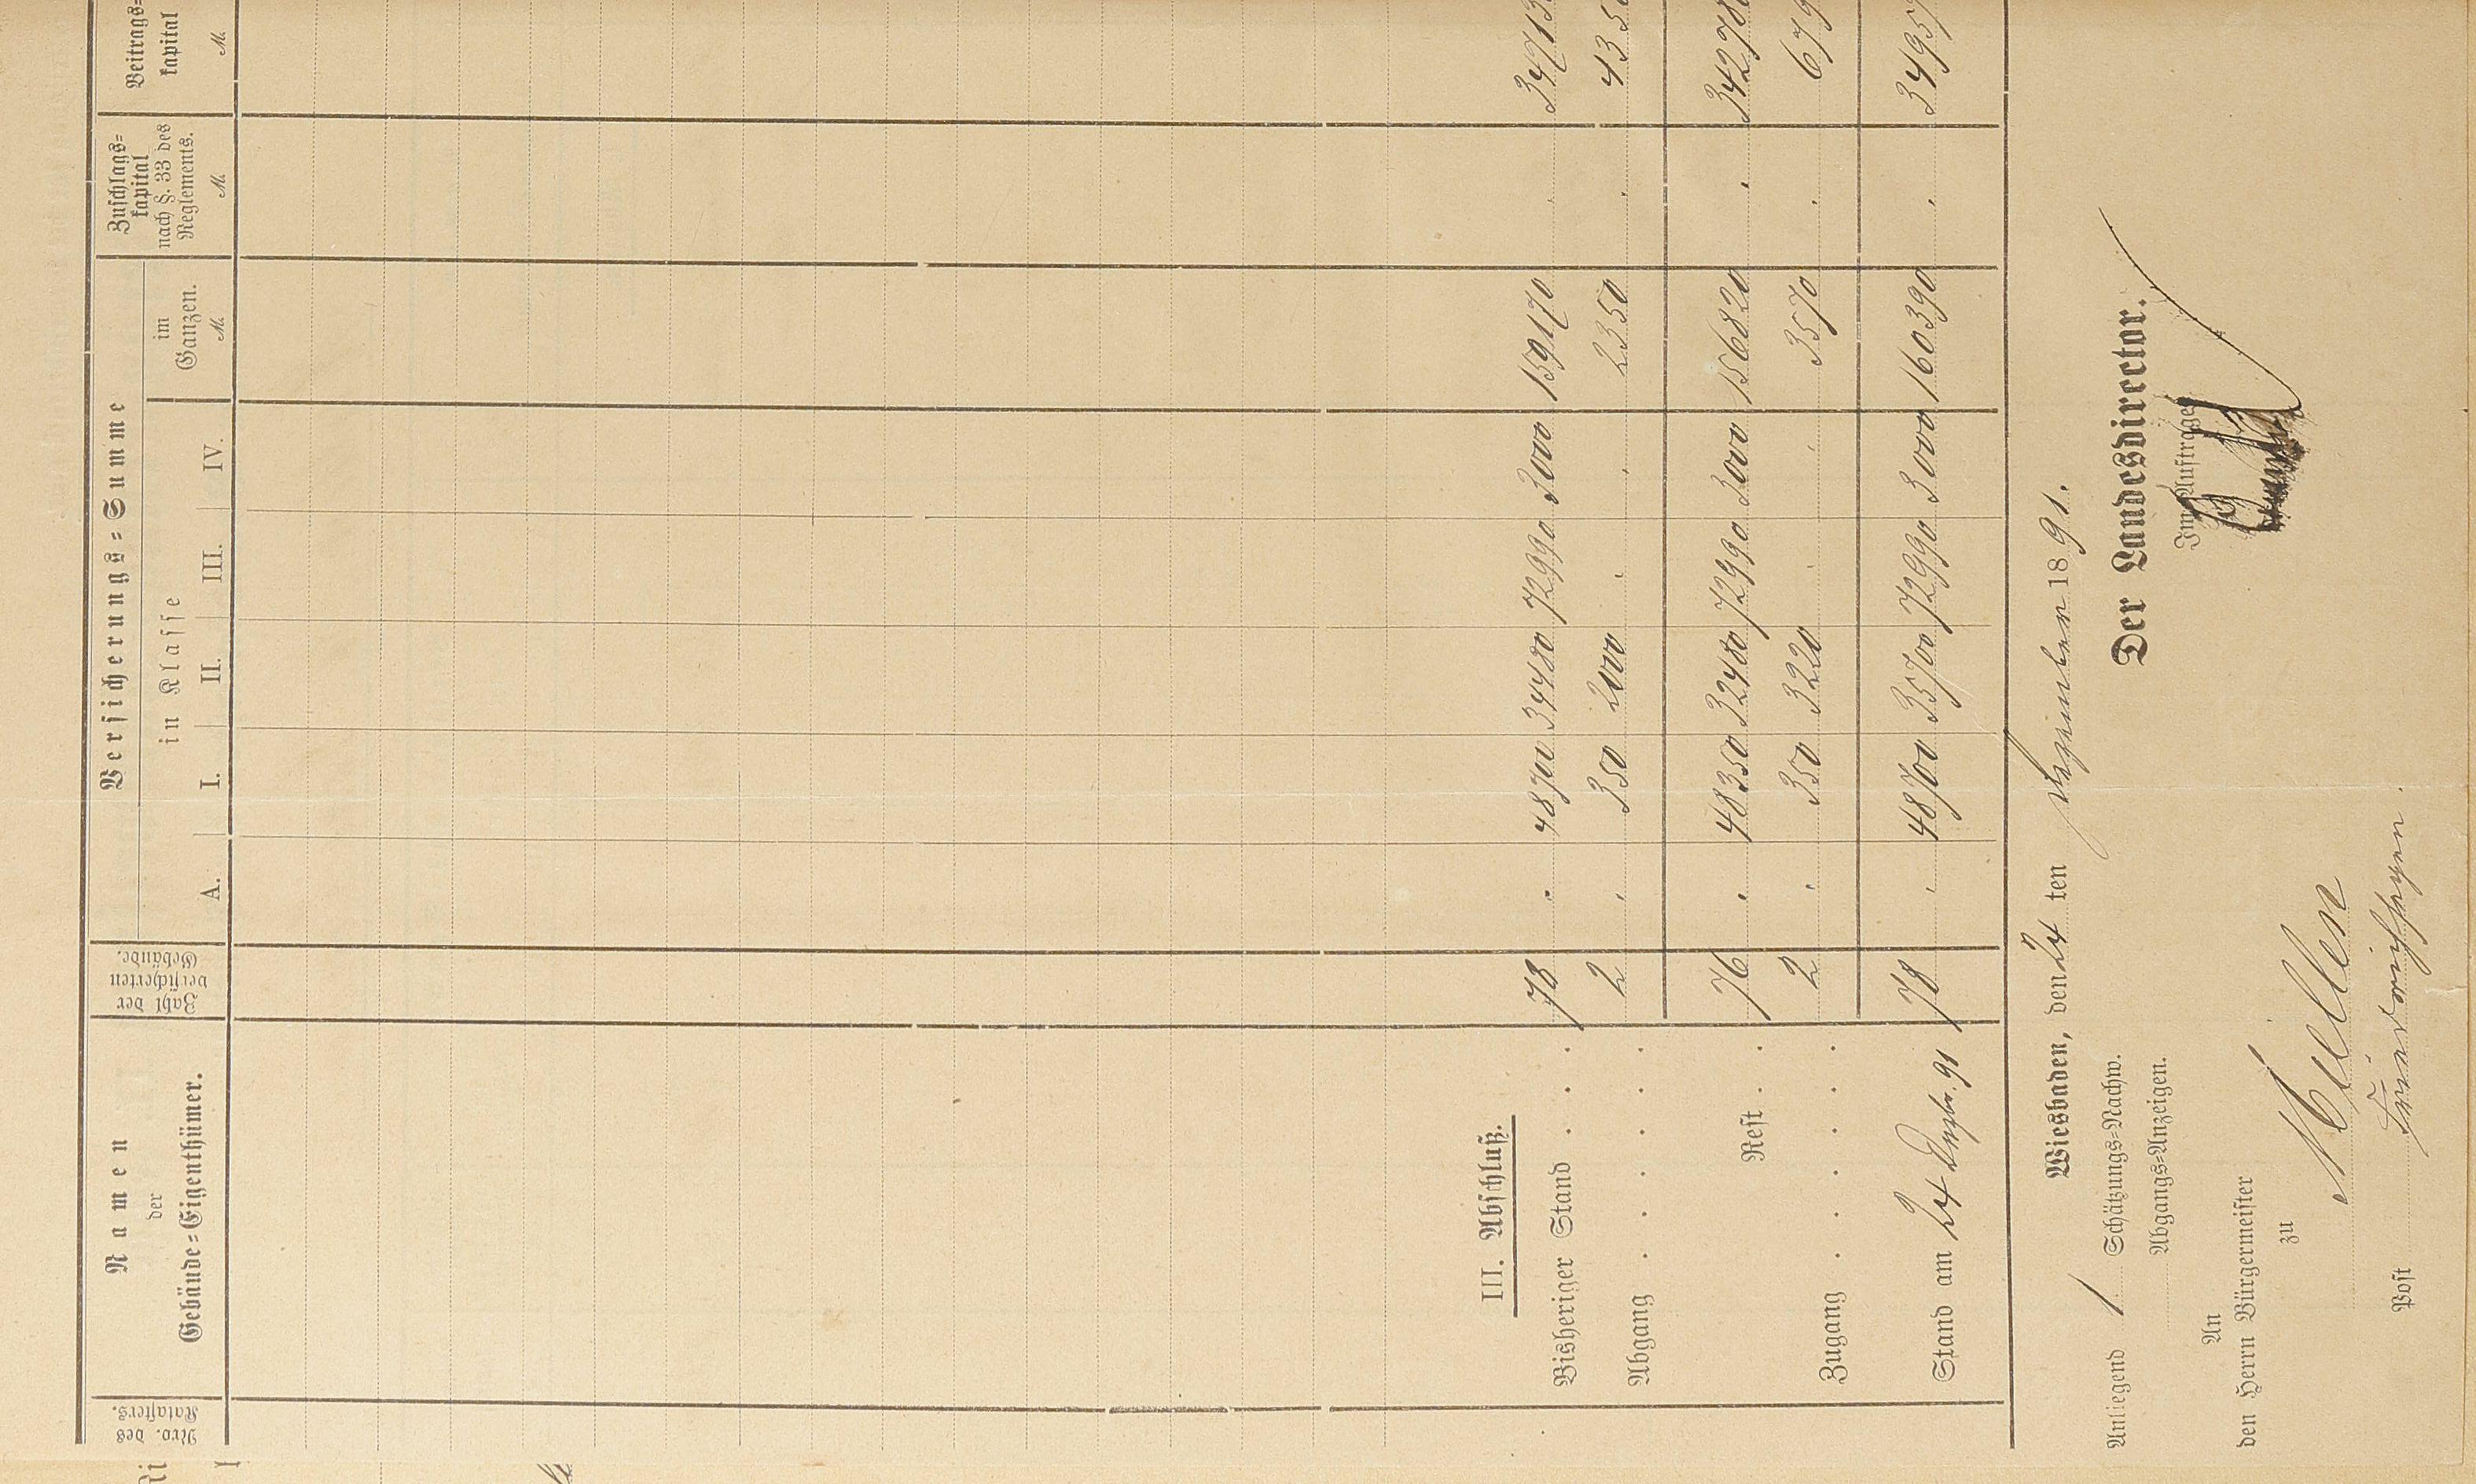 Nro. des Katasters.
Namen
der
Gebäude=Eigenthümer.
Zahl der versicherten Gebäude.
Versicherungs=Summe
in Klasse
A. I. II. III. IV.
im Ganzen.
M.
Zuschlags=
kapital
nach §. 33 des
Reglements.
M.
Beitrags=
kapital
M.
III. Abschluß.
Bisheriger Stand . . . . 78 . 48700 34480 72990 3000 159170 .
Abgang . . . . . 2 . 350 2000 . . 2350 .
Rest . . 76 . 48350 32480 72990 3000 156820 .
Zugang . . . . . 2 . 350 3220 . . 3570 .
Stand am 24 Dezbr. 91 78 . 48700 35700 72990 3000 160390 .
Wiesbaden, den 24 ten Dezember 1891.
Anliegend 1 Schätzungs=Nachw.
Abgangs=Anzeigen.
Der Landesdirector.
Im Auftrage
An
den Herrn Bürgermeister
zu
Post